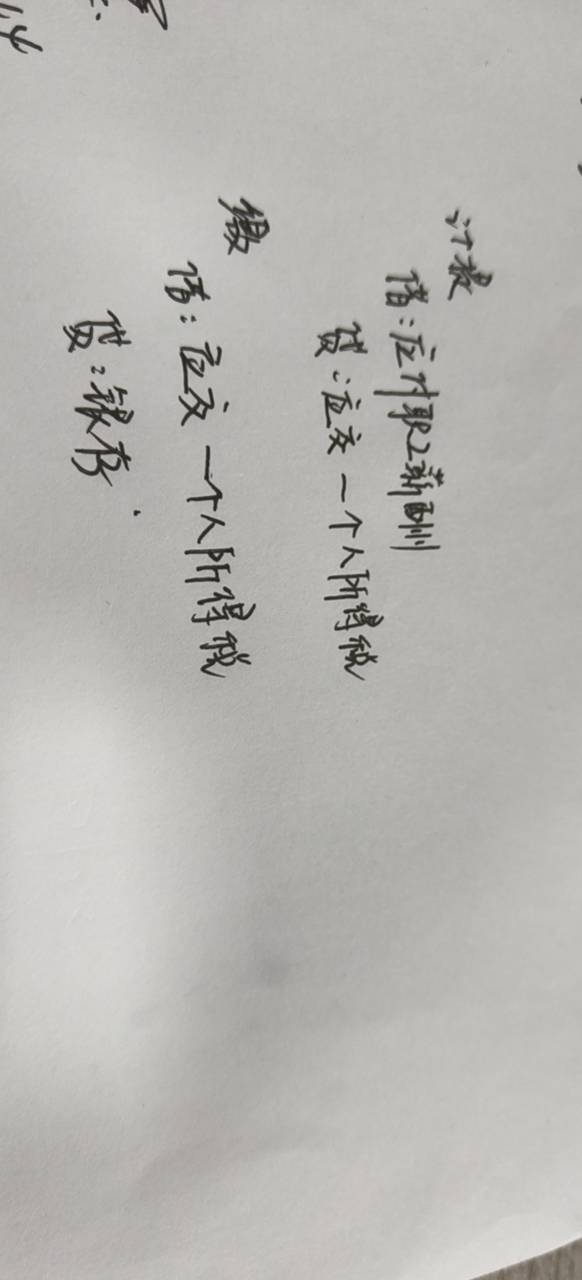 计提
借:应付职工薪酬
贷:应交一个人所得税
缴
借:应交一个人所得税
贷:银存.